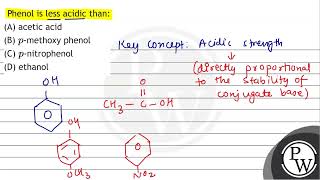 Phenol is less acidic than:
(A) acetic acid
(B) p-methoxy phenol
(C) p-nitrophenol
(D) ethanol
Key Concept: Acidic strength
(directly proportional
to the stability of
conjugate base)
OH
O
CH3 - C - OH
OH
OCH3
NO2
PW
PW